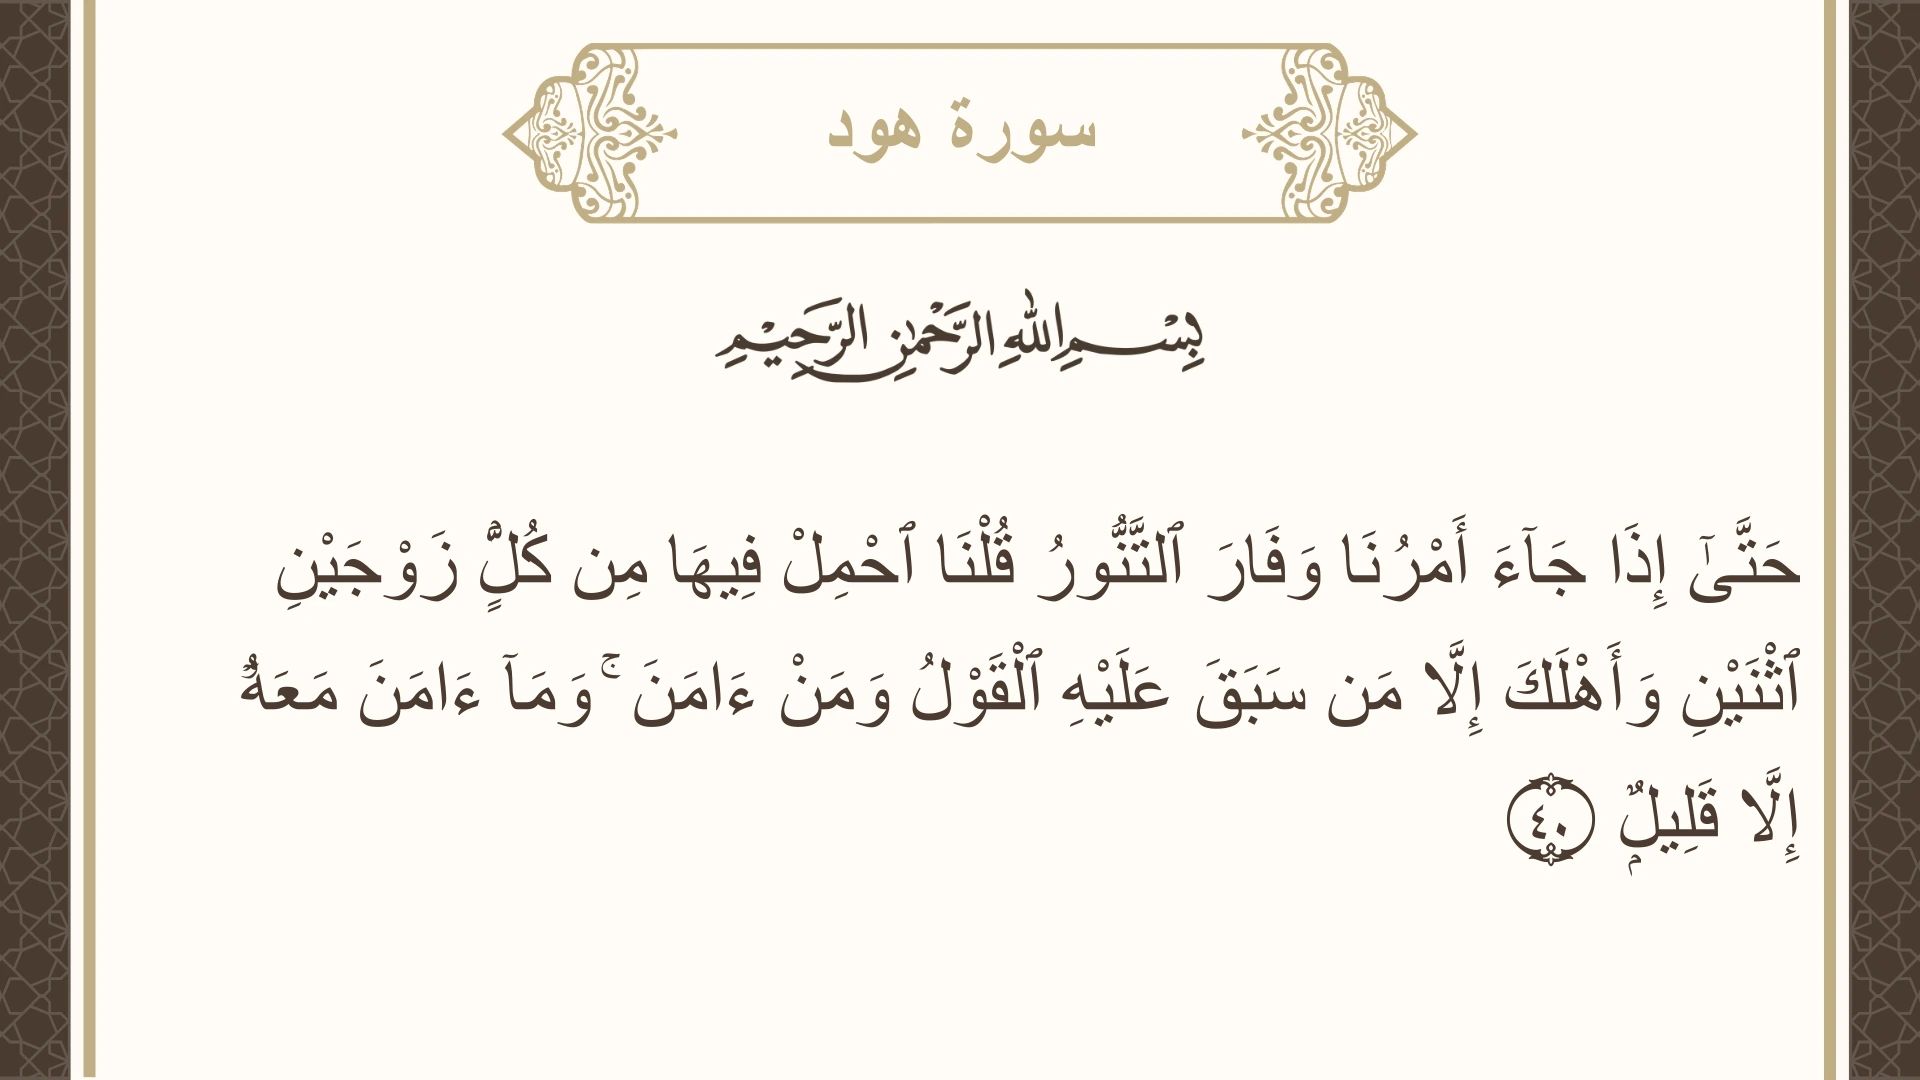 سورة هود
بِسْمِ اللهِ الرَّحْمٰنِ الرَّحِيْمِ
حَتَّىٰٓ إِذَا جَآءَ أَمْرُنَا وَفَارَ ٱلتَّنُّورُ قُلْنَا ٱحْمِلْ فِيهَا مِن كُلٍّۢ زَوْجَيْنِ
ٱثْنَيْنِ وَأَهْلَكَ إِلَّا مَن سَبَقَ عَلَيْهِ ٱلْقَوْلُ وَمَنْ ءَامَنَ ۚ وَمَآ ءَامَنَ مَعَهُۥٓ
إِلَّا قَلِيلٌۭ ٤٠